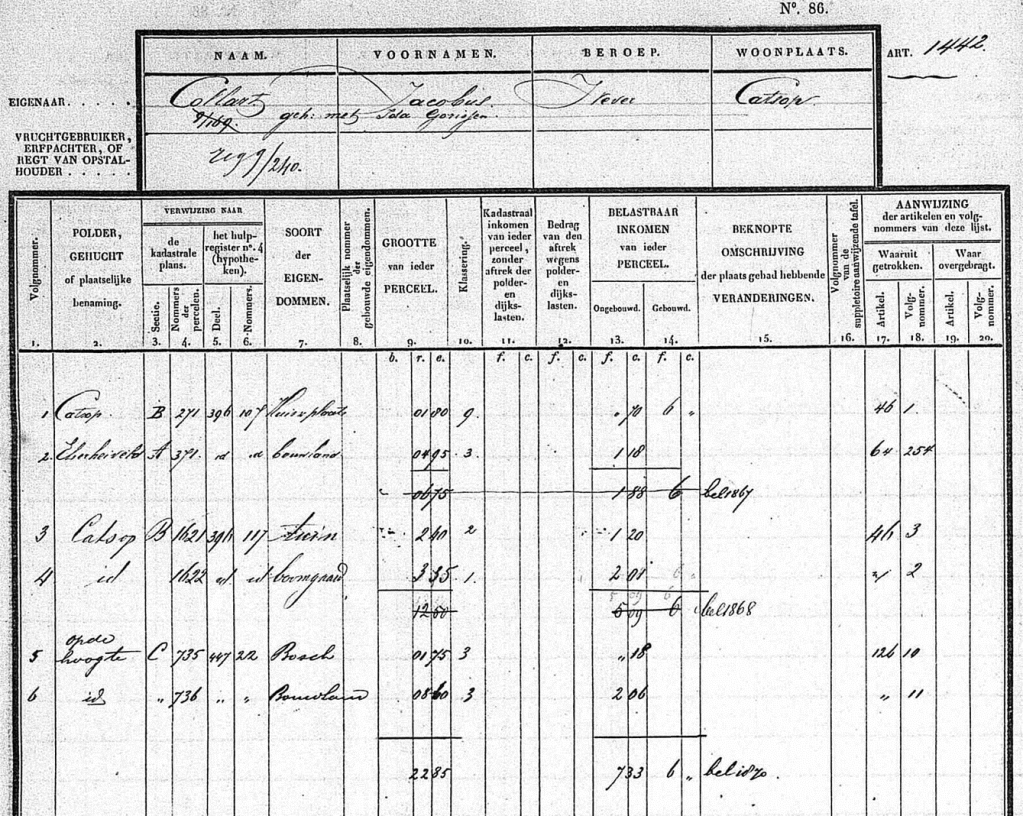 N°. 86.
NAAM. VOORNAMEN. BEROEP. WOONPLAATS. ART. 1442.
EIGENAAR. . . . . . Collart Jacobus Wever Catsop.
9/169. geh: met Ida Gorissen.
VRUCHTGEBRUIKER, ERFPACHTER, OF REGT VAN OPSTAL-HOUDER . . . . . 9/240.
Volgnommer. 1.
POLDER, GEHUCHT of plaatselijke benaming. 2.
VERWIJZING NAAR
de kadastrale plans.
Sectie. 3.
Nommers der perceelen. 4.
het hulp-register n°. 4 (hypotheken).
Deel. 5.
Nommers. 6.
SOORT der EIGEN-DOMMEN. 7.
Plaatselijk nommer der gebouwde eigendommen. 8.
GROOTTE van ieder PERCEEL. 9.
Klassering. 10.
Kadastraal inkomen van ieder perceel, zonder aftrek der polder- en dijks-lasten. 11.
Bedrag van den aftrek wegens polder- en dijks-lasten. 12.
BELASTBAAR INKOMEN van ieder PERCEEL.
Ongebouwd. 13.
Gebouwd. 14.
BEKNOPTE OMSCHRIJVING der plaats gehad hebbende VERANDERINGEN. 15.
Volgnommer van de suppletoire aanwijzende tafel. 16.
AANWIJZING der artikelen en volg-nommers van deze lijst.
Waaruit getrokken.
Artikel. 17.
Volg-nommer. 18.
Waar overgebragt.
Artikel. 19.
Volg-nommer. 20.
b. r. e. f. c. f. c. f. c. f. c.
1 Catsop B 271 396 107 Huis 01 80 9. " 70 6 " 46 1.
2 A 371. id id bouwland 04 95 3. 1 18 64 254
06 75 1 88 6 bel 1867
3 Catsop B 1621 396 117 tuin 2 40 2 1 20 46 3
4 id 1622 id id boomgaard 3 35 1. 2 01 id 2
12 50 5 09 6 bel 1868
5 op de hoogte C 735 447 22 Bosch 01 75 3 " 18 126 10
6 id " 736 " " Bouwland 08 60 3 2 06 " 11
22 85 7 33 6 " bel 1870.